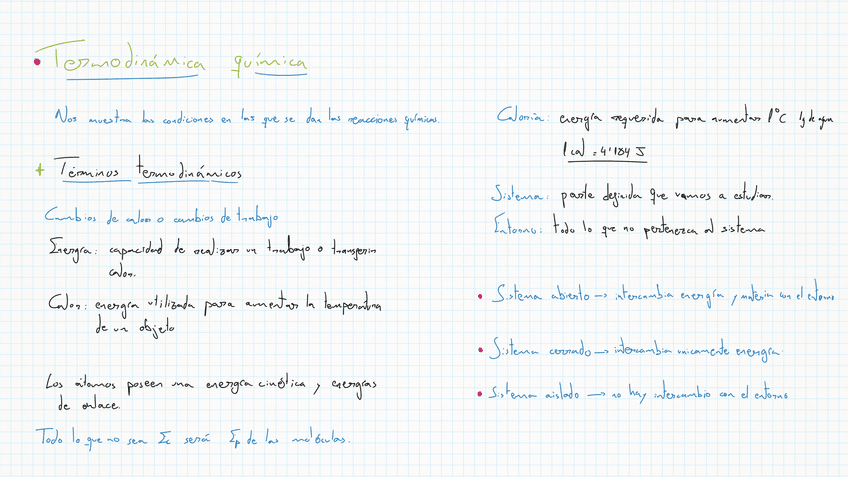 • Termodinámica química
Nos muestra las condiciones en las que se dan las reacciones químicas.
+ Términos termodinámicos
Cambios de calor o cambios de trabajo
Energía: capacidad de realizar un trabajo o transferir
calor.
Calor: energía utilizada para aumentar la temperatura
de un objeto
Los átomos poseen una energía cinética y energías
de enlace.
Todo lo que no sea Ec será Ep de las moléculas.
Caloría: energía requerida para aumentar 1°C 1g de agua
1 cal = 4'184 J
Sistema: parte definida que vamos a estudiar.
Entorno: todo lo que no pertenezca al sistema
• Sistema abierto → intercambia energía y materia con el entorno
• Sistema cerrado → intercambia unicamente energía
• Sistema aislado → no hay intercambio con el entorno